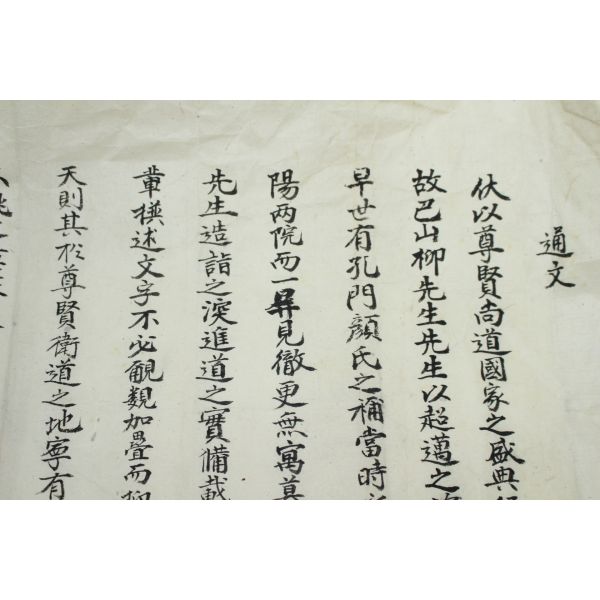 通文
伏以尊賢尚道國家之盛典
故巴山柳先生先生以超邁之
早世有孔門顔氏之稱當時
陽兩院而一昇見徹更無寓
先生造詣之深進道之實備載
輩撰述文字不必覼觀加疊而
天則其於尊賢衛道之地寧有